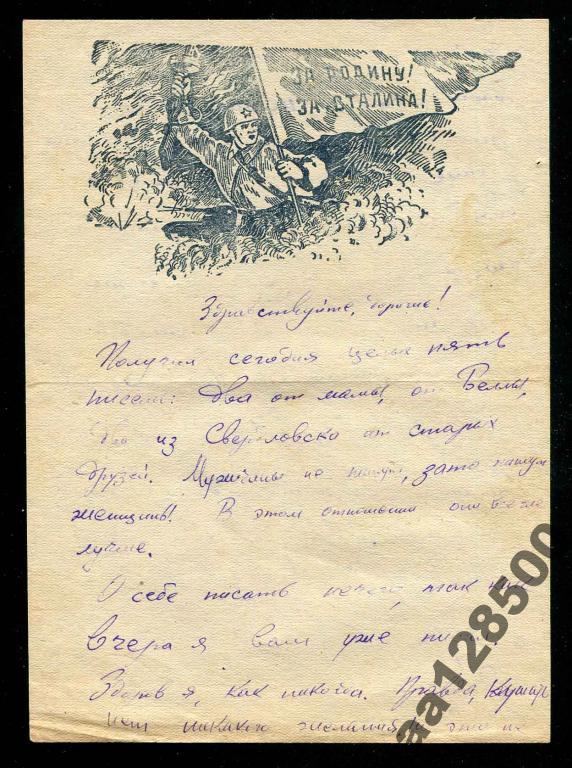 ЗА РОДИНУ!
ЗА СТАЛИНА!
Здравствуйте, дорогие!
Получил сегодня целых пять
писем: два от мамы, от Беллы,
два из Свердловска от старых
друзей. Мужчины не пишут, зато пишут
женщины! В этом отношении они
лучше.
О себе писать нечего, так как
вчера я вам уже писал.
я, как никогда. Правда, кушать
нет никакого желания
aa128500